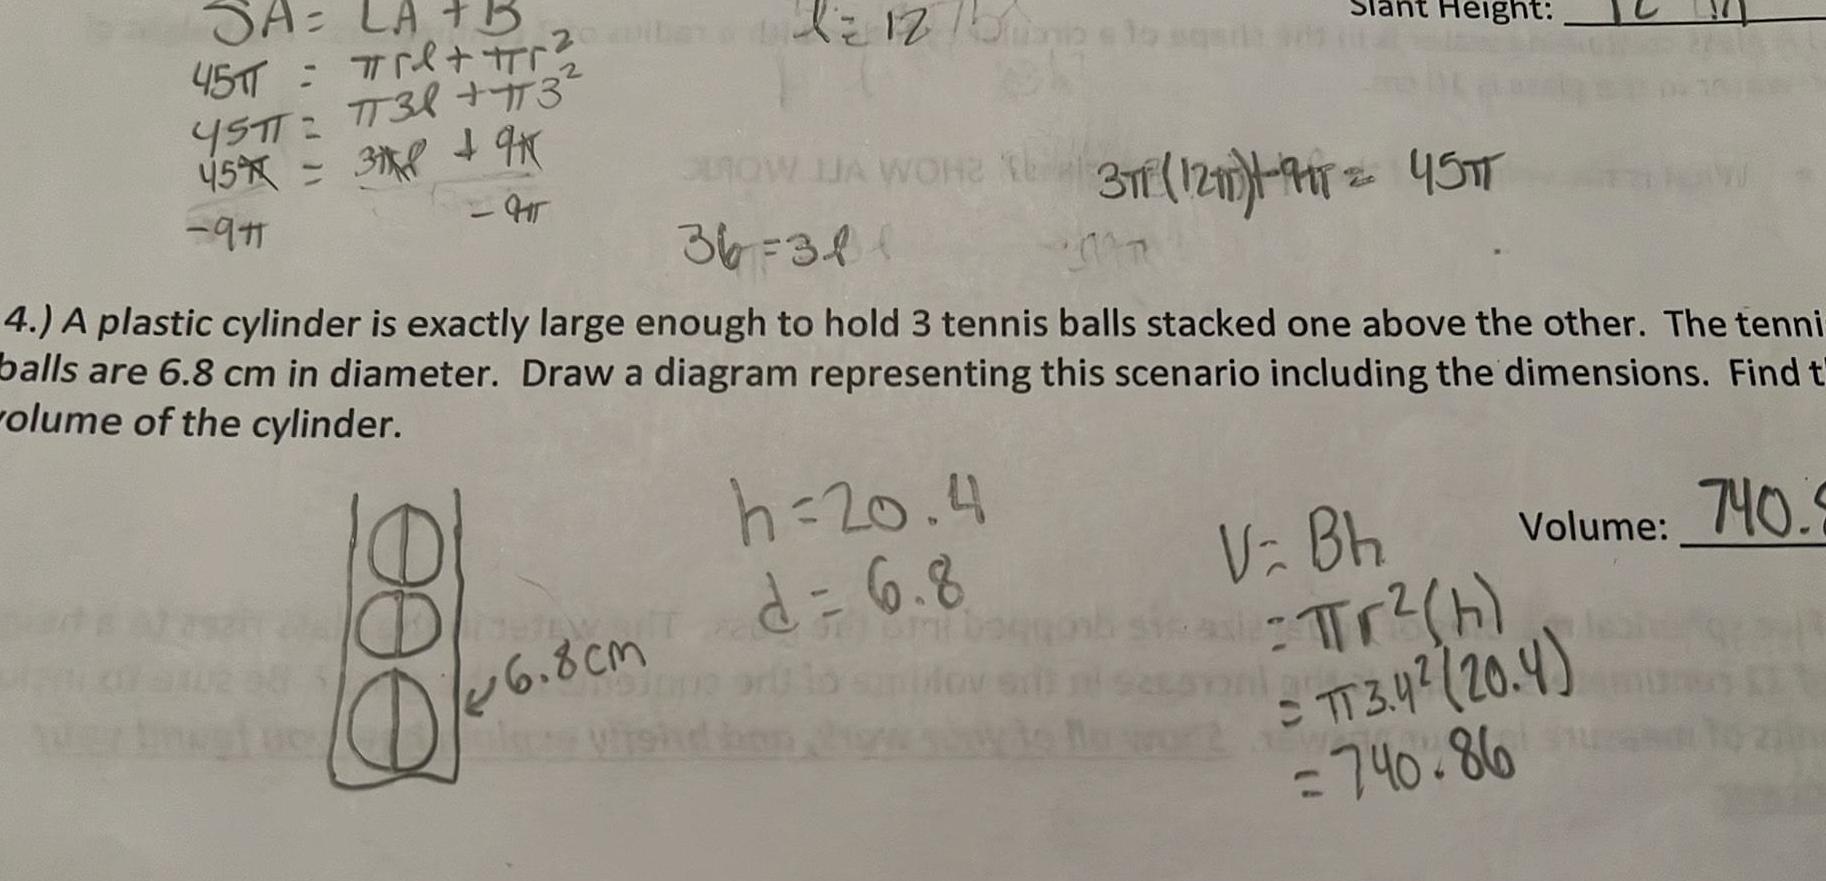 SA = LA + B
l = 12
Slant Height:
45π = πrl + πr²
45π = π3l + π3²
45π = 3πl + 9π
-9π - 9π
3π(12π)+9π = 45π
36 = 3l
4.) A plastic cylinder is exactly large enough to hold 3 tennis balls stacked one above the other. The tenni
balls are 6.8 cm in diameter. Draw a diagram representing this scenario including the dimensions. Find t
olume of the cylinder.
h = 20.4
d = 6.8
6.8cm
V = Bh
= πr²(h)
= π3.4²(20.4)
= 740.86
Volume: 740.8